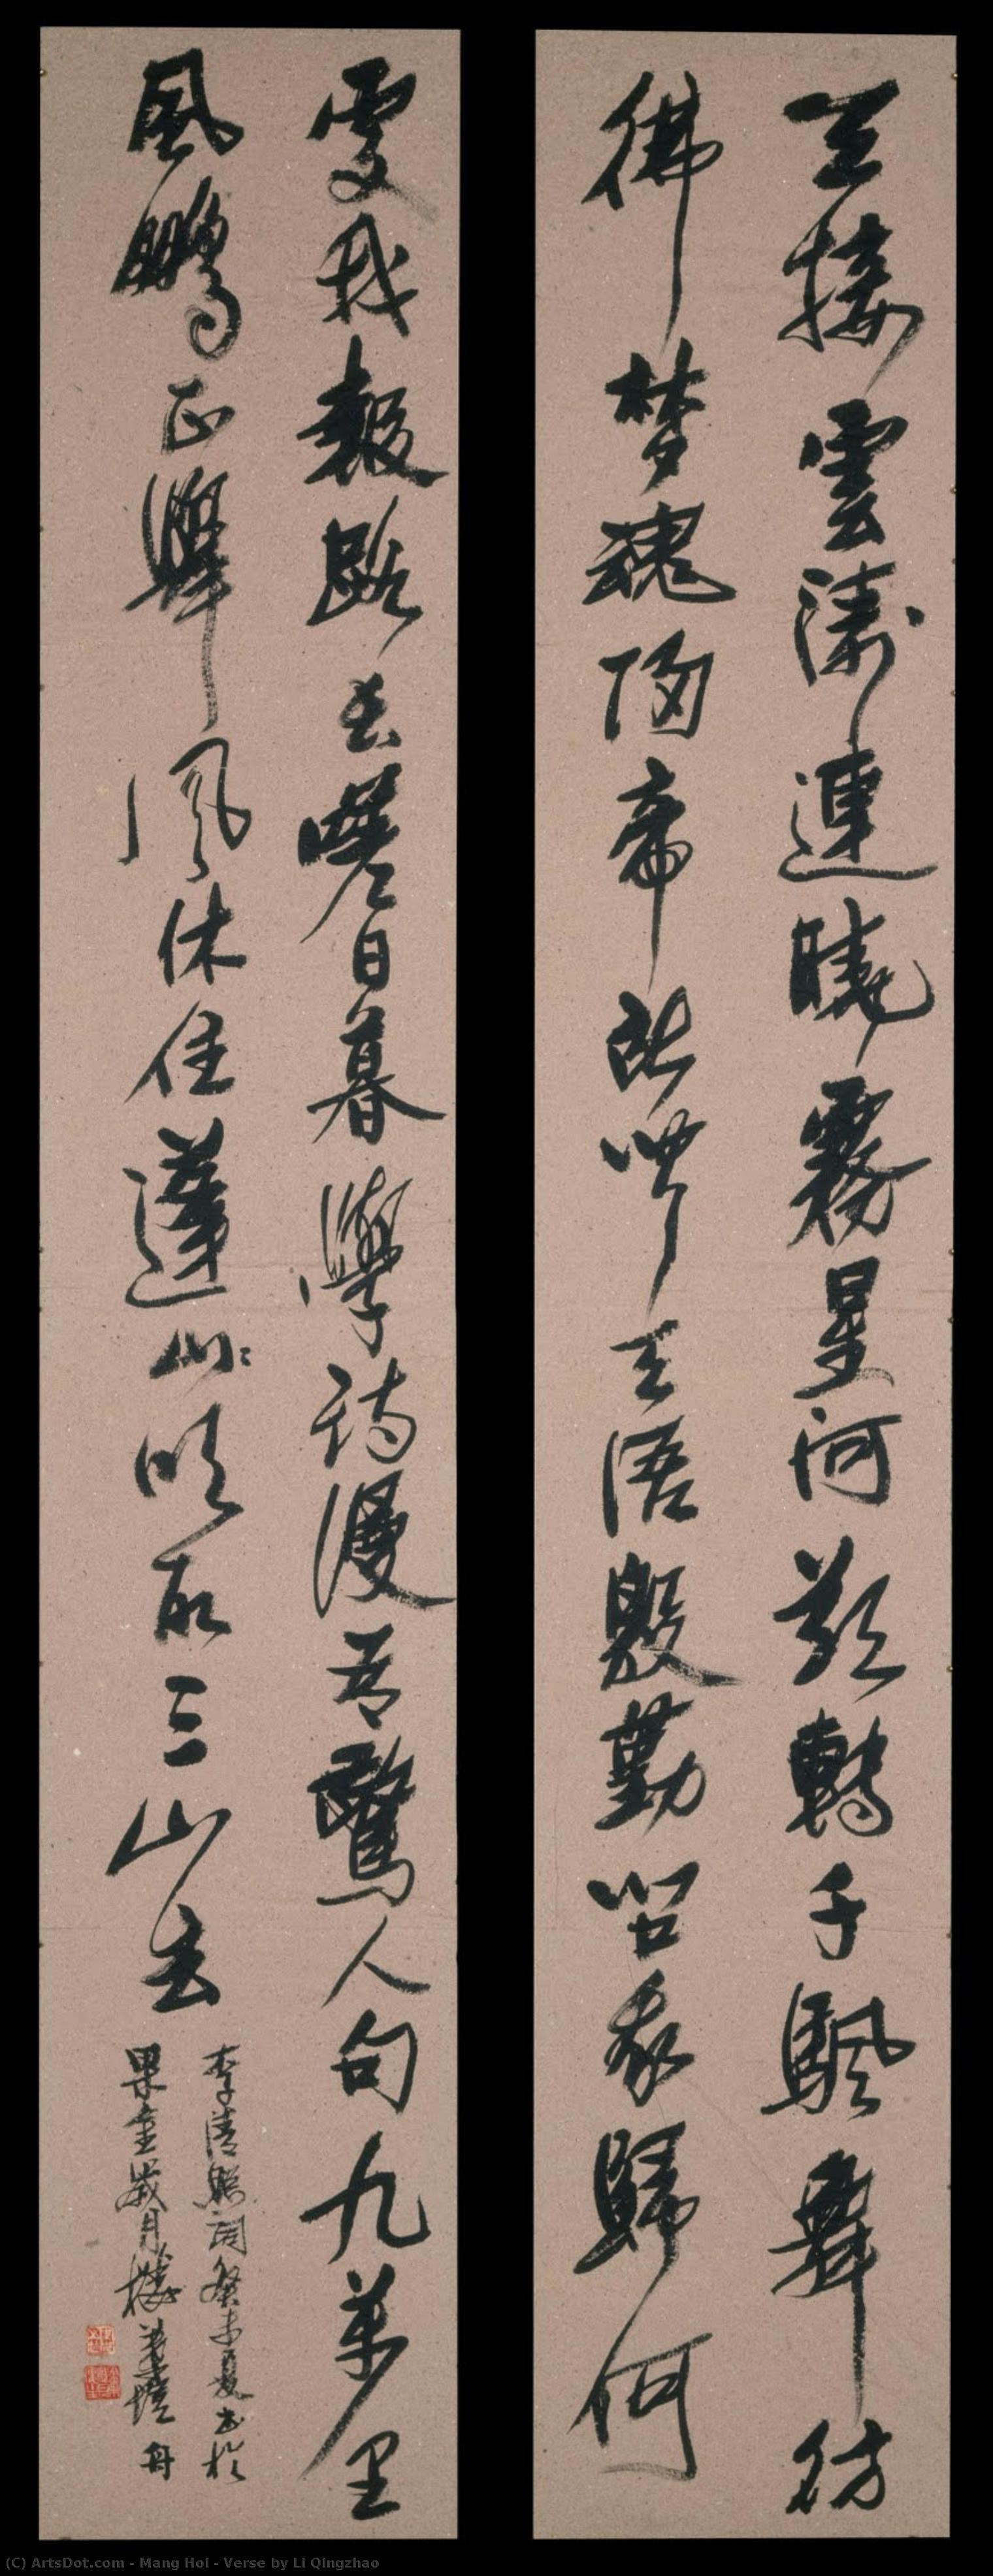 天接雲濤連曉霧星河欲轉千颿舞彷
彿梦魂歸帝所聞天語殷勤問我歸何
處我報路長嗟日暮學詩謾有驚人句九萬里
風鵬正舉風休住蓬山吹取三山去
李清照詞癸未夏書於
果重歲月樓 舟
(C) ArtsDot.com - Mang Hoi - Verse by Li Qingzhao